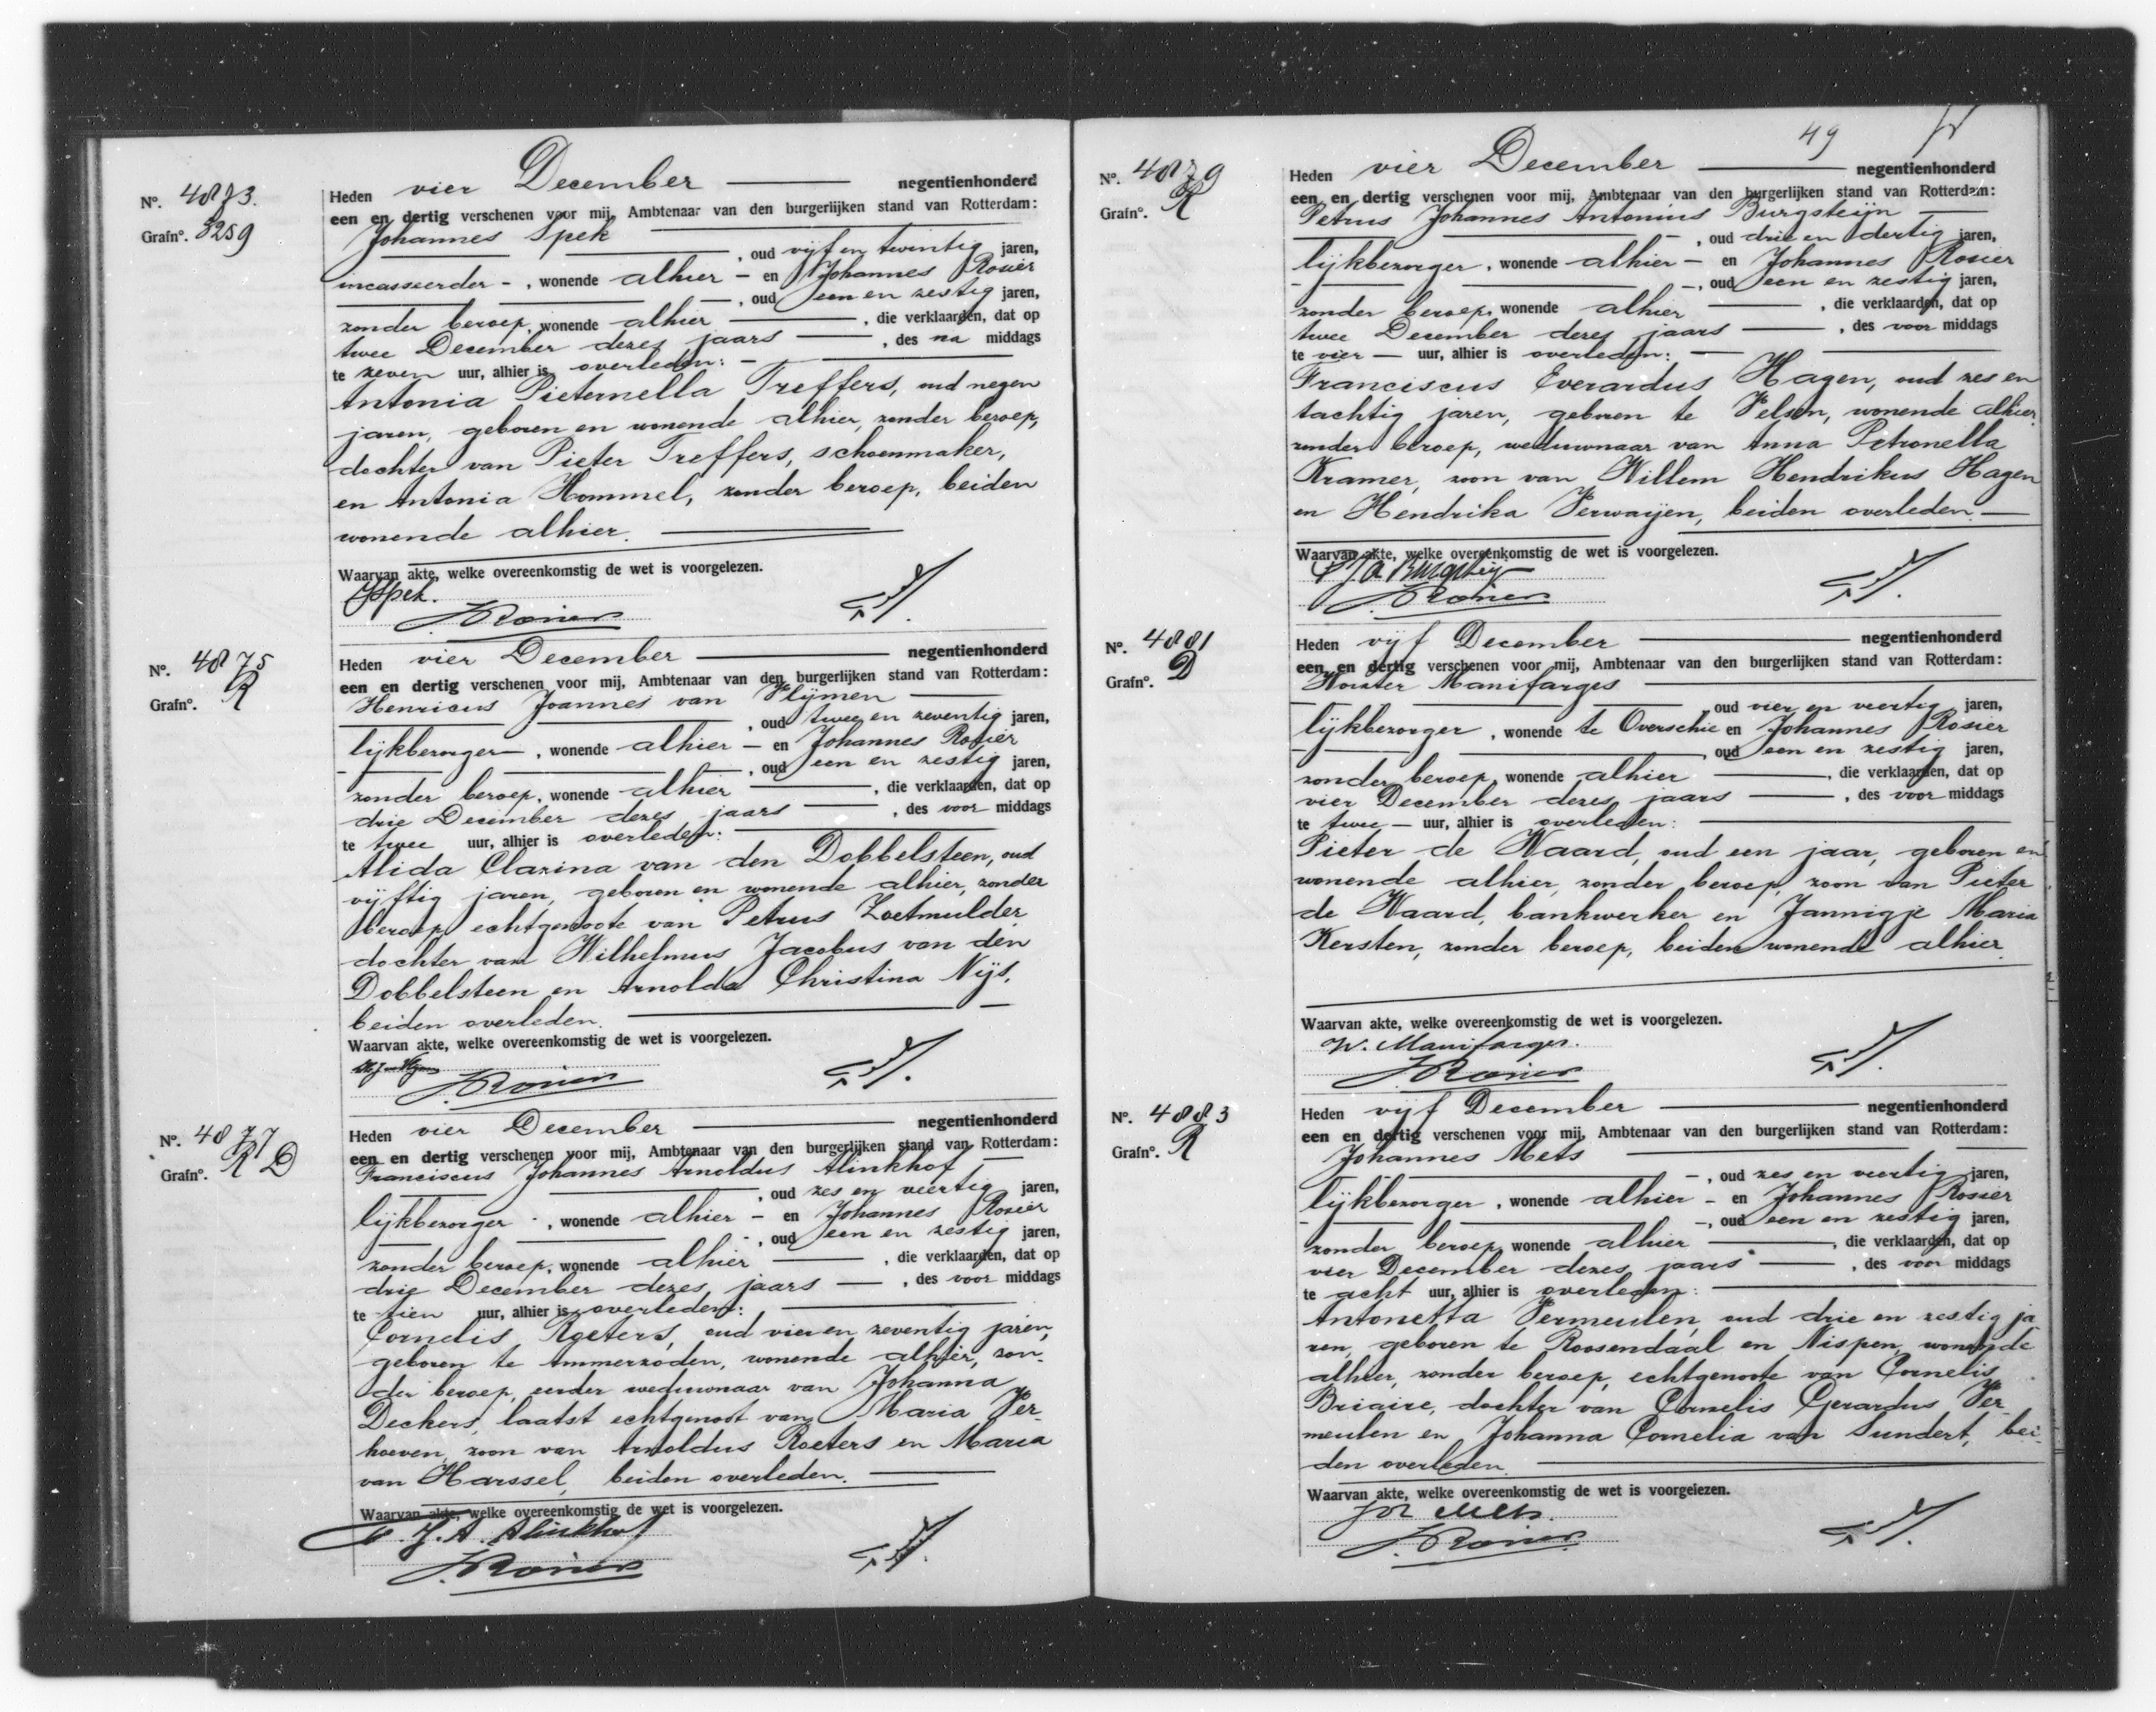 No. 4873.
Grafno. 3259
Heden vier December negentienhonderd
een en dertig verschenen voor mij, Ambtenaar van den burgerlijken stand van Rotterdam:
Johannes Spek
, oud vijf en twintig jaren,
incasseerder - , wonende alhier - en Johannes Rosier
, oud een en zestig jaren,
zonder beroep, wonende alhier , die verklaarden, dat op
twee December dezes jaars , des na middags
te zeven uur, alhier is overleden: -
Antonia Pieternella Treffers, oud negen
jaren, geboren en wonende alhier, zonder beroep,
dochter van Pieter Treffers, schoenmaker,
en Antonia Hommel, zonder beroep, beiden
wonende alhier.
Waarvan akte, welke overeenkomstig de wet is voorgelezen.
JSpek.
J. Rosier
No. 4875
Grafno. R
Heden vier December negentienhonderd
een en dertig verschenen voor mij, Ambtenaar van den burgerlijken stand van Rotterdam:
Henricus Joannes van Vlijmen
, oud twee en zeventig jaren,
lijkbezorger , wonende alhier - en Johannes Rosier
, oud een en zestig jaren,
zonder beroep, wonende alhier , die verklaarden, dat op
drie December dezes jaars , des voor middags
te twee uur, alhier is overleden:
Alida Clasina van den Dobbelsteen, oud
vijftig jaren, geboren en wonende alhier, zonder
beroep, echtgenoote van Petrus Zoetmulder
dochter van Wilhelmus Jacobus van den
Dobbelsteen en Arnolda Christina Nijs,
beiden overleden.
Waarvan akte, welke overeenkomstig de wet is voorgelezen.
J. Rosier
No. 4877
Grafno. R D
Heden vier December negentienhonderd
een en dertig verschenen voor mij, Ambtenaar van den burgerlijken stand van Rotterdam:
Franciscus Johannes Arnoldus Alinkhof
, oud zes en veertig jaren,
lijkbezorger , wonende alhier - en Johannes Rosier
, oud een en zestig jaren,
zonder beroep, wonende alhier , die verklaarden, dat op
drie December dezes jaars , des voor middags
te tien uur, alhier is overleden:
Cornelis Roeters, oud vier en zeventig jaren,
geboren te Ammerzoden, wonende alhier, zon-
der beroep, eerder weduwnaar van Johanna
Deckers, laatst echtgenoot van Maria Ver-
hoeven, zoon van Arnoldus Roeters en Maria
van Harssel, beiden overleden.
Waarvan akte, welke overeenkomstig de wet is voorgelezen.
F. J. A. Alinkhof
J. Rosier
49
No. 4879
Grafno. R
Heden vier December negentienhonderd
een en dertig verschenen voor mij, Ambtenaar van den burgerlijken stand van Rotterdam:
Petrus Johannes Antonius Burgsteijn
, oud drie en dertig jaren,
lijkbezorger , wonende alhier - en Johannes Rosier
, oud een en zestig jaren,
zonder beroep, wonende alhier , die verklaarden, dat op
twee December dezes jaars , des voor middags
te vier uur, alhier is overleden:
Franciscus Everardus Hagen, oud zes en
tachtig jaren, geboren te Velsen, wonende alhier,
zonder beroep, weduwnaar van Anna Petronella
Kramer, zoon van Willem Hendrikus Hagen
en Hendrika Verwaijen, beiden overleden
Waarvan akte, welke overeenkomstig de wet is voorgelezen.
PJA Burgsteijn
J. Rosier
No. 4881
Grafno. D
Heden vijf December negentienhonderd
een en dertig verschenen voor mij, Ambtenaar van den burgerlijken stand van Rotterdam:
Wouter Manifarges
oud vier en veertig jaren,
lijkbezorger , wonende te Overschie en Johannes Rosier
oud een en zestig jaren,
zonder beroep, wonende alhier , die verklaarden, dat op
vier December dezes jaars , des voor middags
te twee uur, alhier is overleden:
Pieter de Waard, oud een jaar, geboren en
wonende alhier, zonder beroep, zoon van Pieter
de Waard, bankwerker en Jannigje Maria
Kersten, zonder beroep, beiden wonende alhier.
Waarvan akte, welke overeenkomstig de wet is voorgelezen.
W. Manifarges.
J. Rosier
No. 4883
Grafno. R
Heden vijf December negentienhonderd
een en dertig verschenen voor mij, Ambtenaar van den burgerlijken stand van Rotterdam:
Johannes Mets
, oud zes en veertig jaren,
lijkbezorger , wonende alhier - en Johannes Rosier
, oud een en zestig jaren,
zonder beroep, wonende alhier , die verklaarden, dat op
vier December dezes jaars , des voor middags
te acht uur, alhier is overleden:
Antonetta Vermeulen, oud drie en zestig ja-
ren, geboren te Roosendaal en Nispen, wonende
alhier, zonder beroep, echtgenoote van Cornelis
Briaire, dochter van Cornelis Gerardus Ver-
meulen en Johanna Cornelia van Sundert, bei-
den overleden.
Waarvan akte, welke overeenkomstig de wet is voorgelezen.
Joh Mets.
J. Rosier